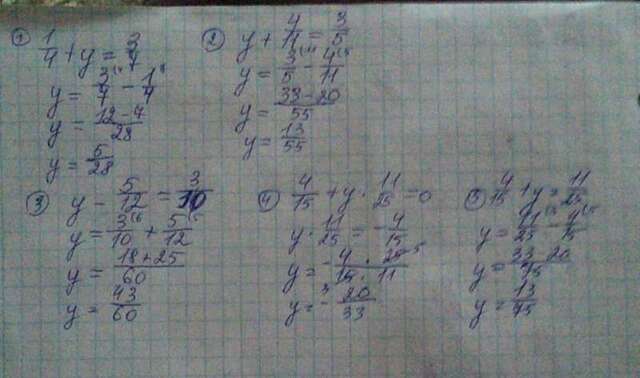 ① 1/4 + y = 3/7
y = 3/7 - 1/4
y = 12-7/28
y = 5/28
② y + 4/11 = 3/5
y = 3/5 - 4/11
y = 33-20/55
y = 13/55
③ y - 5/12 = 3/10
y = 3(6/10 + 5(5/12
y = 18+25/60
y = 43/60
④ 4/15 + y · 11/25 = 0
y · 11/25 = -4/15
y = - 4 · 25 5/15 · 11 3
y = - 20/33
⑤ 4/15 + y = 11/25
y = 11(3/25 - 4(5/15
y = 33-20/75
y = 13/75